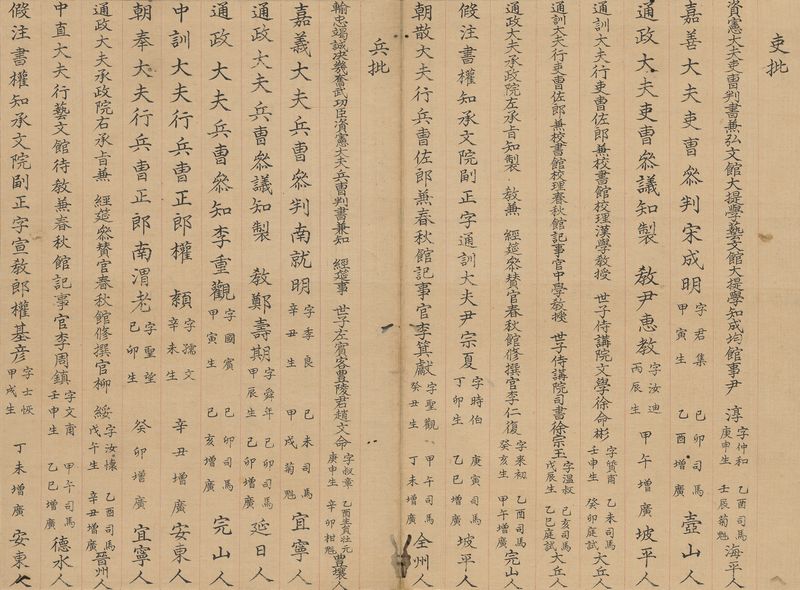 吏批
資憲大夫吏曹判書兼弘文館大提學藝文館大提學知成均館事尹 淳 字仲和 庚申生 乙酉司馬 壬辰菊魁 海平人
嘉善大夫吏曹參判宋成明 字君集 甲寅生 己卯司馬 乙酉增廣 壺山人
通政大夫吏曹參議知製 教尹惠教 字汝迪 丙辰生 甲午增廣 坡平人
通訓大夫行吏曹佐郎兼校書館校理漢學教授 世子侍講院文學徐命彬 字質甫 壬申生 乙未司馬 癸卯庭試 大丘人
通訓大夫行吏曹佐郎兼校書館校理春秋館記事官中學教授 世子侍講院司書徐宗玉 字溫叔 戊辰生 己亥司馬 乙巳庭試 大丘人
通政大夫承政院左承旨知製 教兼 經筵參贊官春秋館修撰官李仁復 字來初 癸亥生 乙酉司馬 甲午增廣 完山人
假注書權知承文院副正字通訓大夫尹宗夏 字時伯 丁卯生 庚寅司馬 乙巳增廣 坡平人
朝散大夫行兵曹佐郎兼春秋館記事官李箕獻 字聖觀 癸丑生 甲午司馬 丁未增廣 全州人
兵批
輸忠竭誠決幾奮武功臣資憲大夫兵曹判書兼知 經筵事 世子左賓客豊陵君趙文命 字叔章 庚申生 乙酉生員壯元 辛卯柑魁 豊壤人
嘉義大夫兵曹參判南就明 字季良 辛丑生 己未司馬 甲戌菊魁 宜寧人
通政大夫兵曹參議知製 教鄭壽期 字舜年 甲辰生 己卯司馬 己卯增廣 延日人
通政大夫兵曹參知李重觀 字國賓 甲寅生 己卯司馬 己亥增廣 完山人
中訓大夫行兵曹正郎權 熲 字孺文 辛未生 辛丑增廣 安東人
朝奉大夫行兵曹正郎南渭老 字聖望 己卯生 癸卯增廣 宜寧人
通政大夫承政院右承旨兼 經筵參贊官春秋館修撰官柳 綏 字汝懷 戊午生 乙酉司馬 辛丑增廣 晉州人
中直大夫行藝文館待教兼春秋館記事官李周鎮 字文甫 壬申生 甲午司馬 乙巳增廣 德水人
假注書權知承文院副正字宣教郎權基彦 字士恢 甲戌生 丁未增廣 安東人